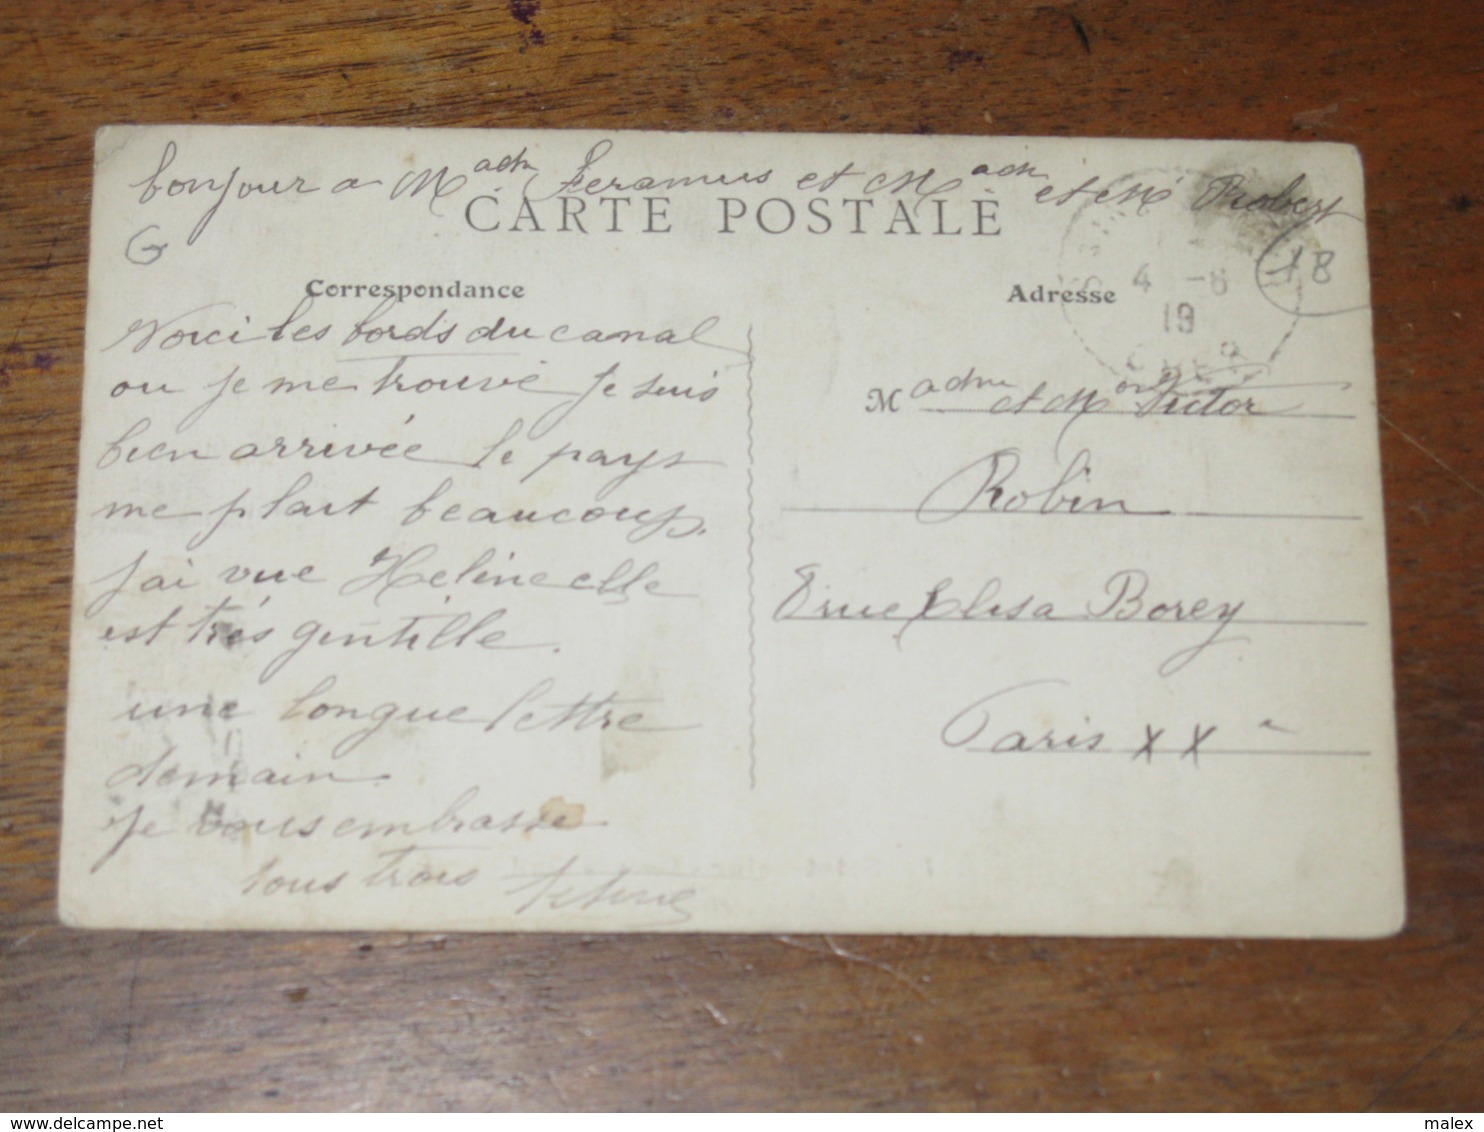 bonjour a Madm Feramus et Madm et M Robert
CARTE POSTALE
G
18
Correspondance
Voici les bords du canal
ou je me trouve je suis
bien arrivée le pays
me plait beaucoup.
J'ai vue Heline elle
est très gentille.
une longue lettre
demain.
Je vous embrasse
tous trois
Adresse
4 -8
19
CHER
Madm et Mon Victor
Robin
rue Elisa Borey
Paris XXe
delcampe.net
malex